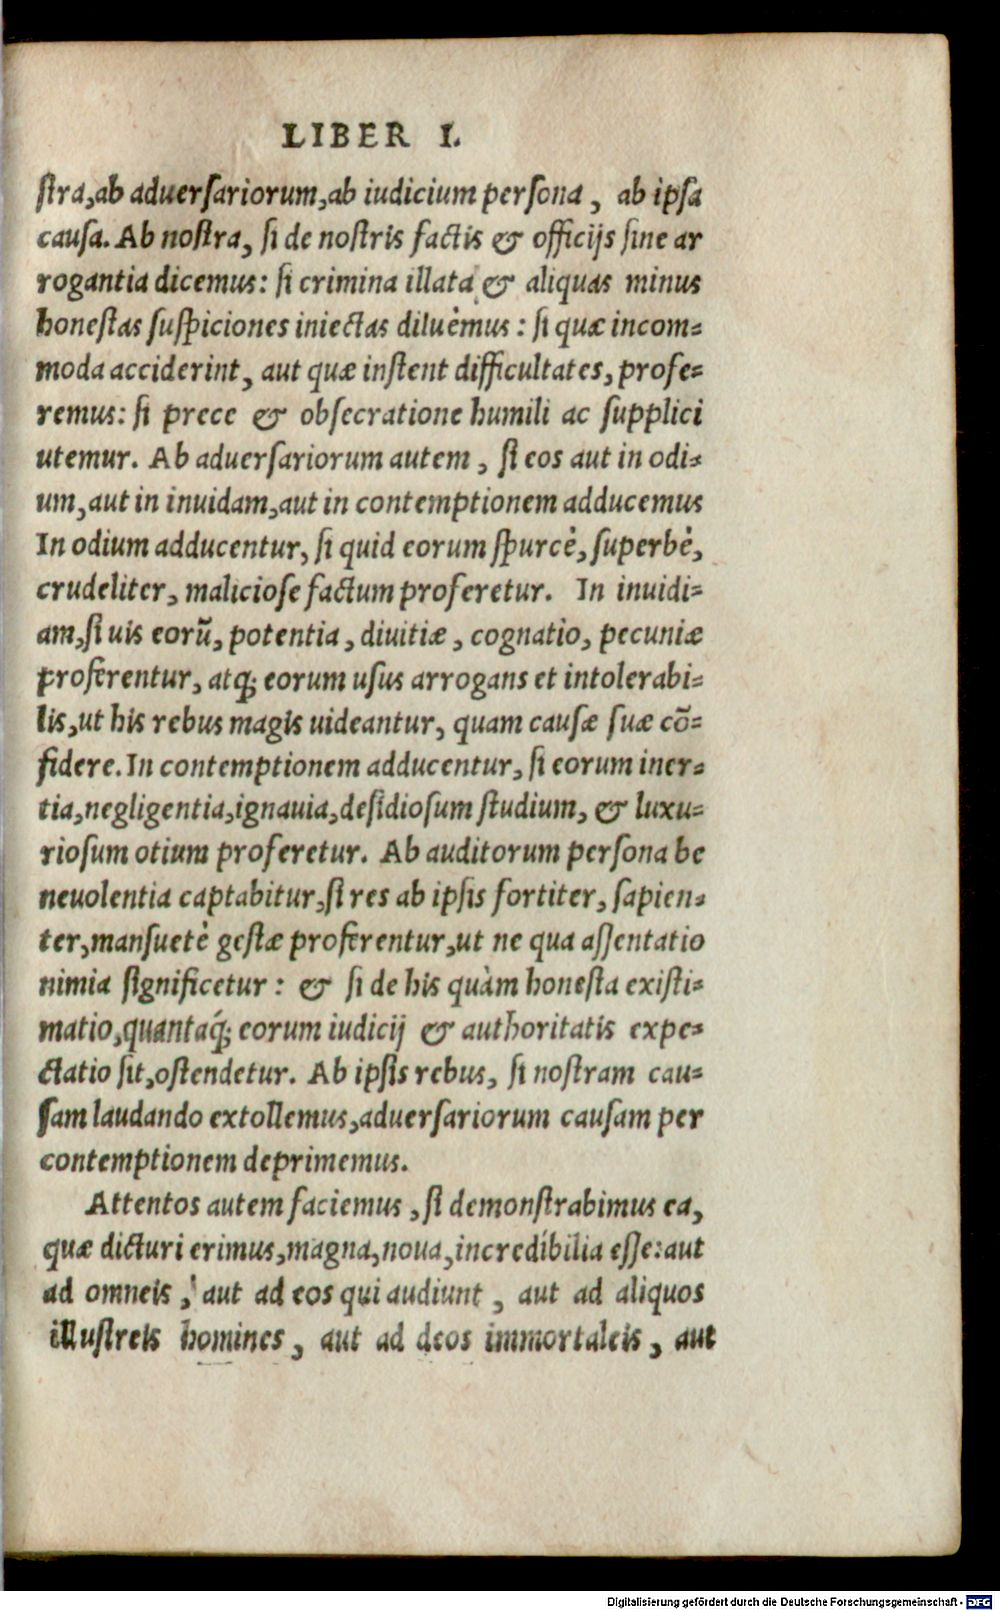 LIBER I.
stra, ab aduersariorum, ab iudicium persona, ab ipsa
causa. Ab nostra, si de nostris factis & officijs sine ar
rogantia dicemus: si crimina illata & aliquas minus
honestas suspiciones iniectas diluèmus: si quæ incom-
moda acciderint, aut quæ instent difficultates, profe-
remus: si prece & obsecratione humili ac supplici
utemur. Ab aduersariorum autem, si eos aut in odi-
um, aut in inuidam, aut in contemptionem adducemus
In odium adducentur, si quid eorum spurcè, superbè,
crudeliter, maliciose factum proferetur. In inuidi-
am, si uis eorũ, potentia, diuitiæ, cognatio, pecuniæ
proferentur, atq; eorum usus arrogans et intolerabi-
lis, ut his rebus magis uideantur, quam causæ suæ cõ-
fidere. In contemptionem adducentur, si eorum iner-
tia, negligentia, ignauia, desidiosum studium, & luxu-
riosum otium proferetur. Ab auditorum persona be
neuolentia captabitur, si res ab ipsis fortiter, sapien-
ter, mansuetè gestæ proferentur, ut ne qua assentatio
nimia significetur: & si de his quàm honesta existi-
matio, quantaq́; eorum iudicij & authoritatis expe-
ctatio sit, ostendetur. Ab ipsis rebus, si nostram cau-
sam laudando extollemus, aduersariorum causam per
contemptionem deprimemus.
Attentos autem faciemus, si demonstrabimus ea,
quæ dicturi erimus, magna, noua, incredibilia esse: aut
ad omneis, aut ad eos qui audiunt, aut ad aliquos
illustreis homines, aut ad deos immortaleis, aut
Digitalisierung gefördert durch die Deutsche Forschungsgemeinschaft - DFG